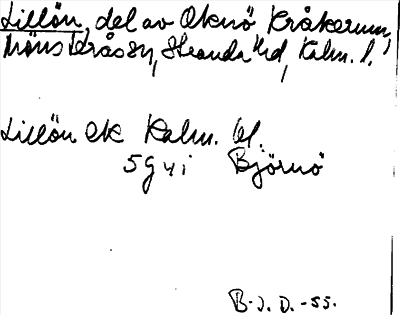 Lillön, del av Oknö Kråkerum,
Mönsterås sn, Stranda hd, Kalm. l.
Lillön ek Kalm. bl.
5G4i Björnö
B.J.D. -55.